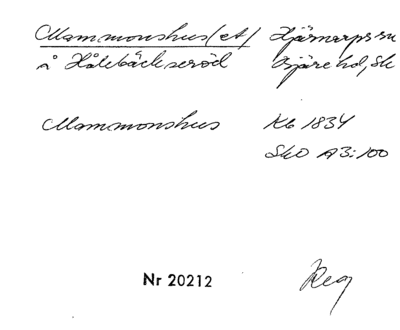 Mammonshus(et) Hjärnarps sn
å Hålebäckseröd Bjäre hd, Sk
Mammonshus Kb 1834
SkO A3:100
Nr 20212 Reg